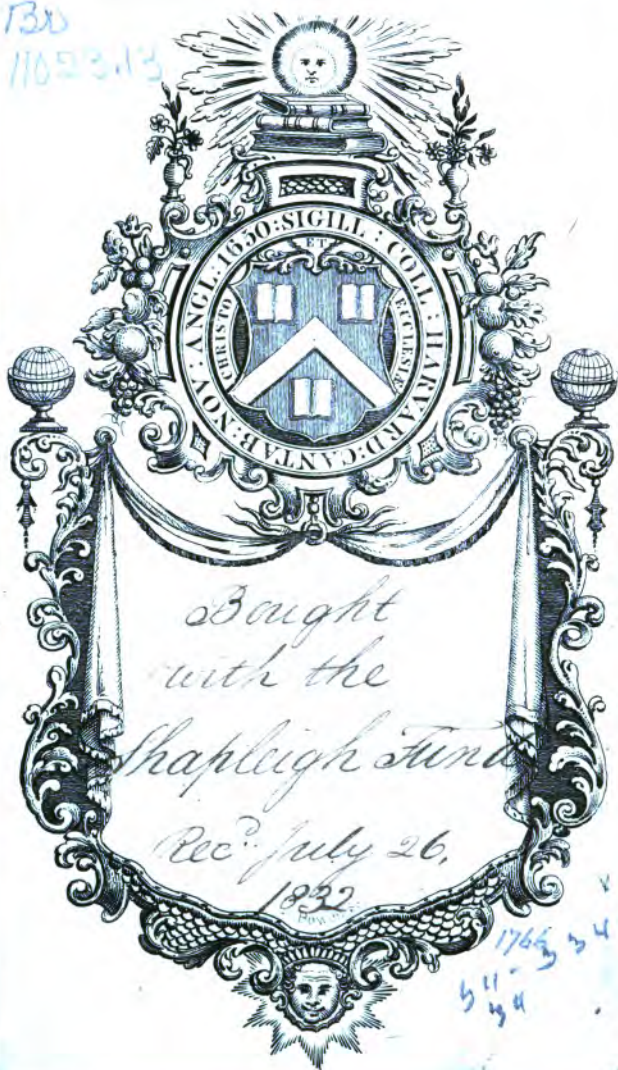 Br
11023.13
SIGILL : COLL : HARVARD : CANTAB : NOV : ANGL : 1650 :
CHRISTO ET ECCLESIÆ
Bought
with the
Shapleigh Fund
Rec.d July 26,
1832